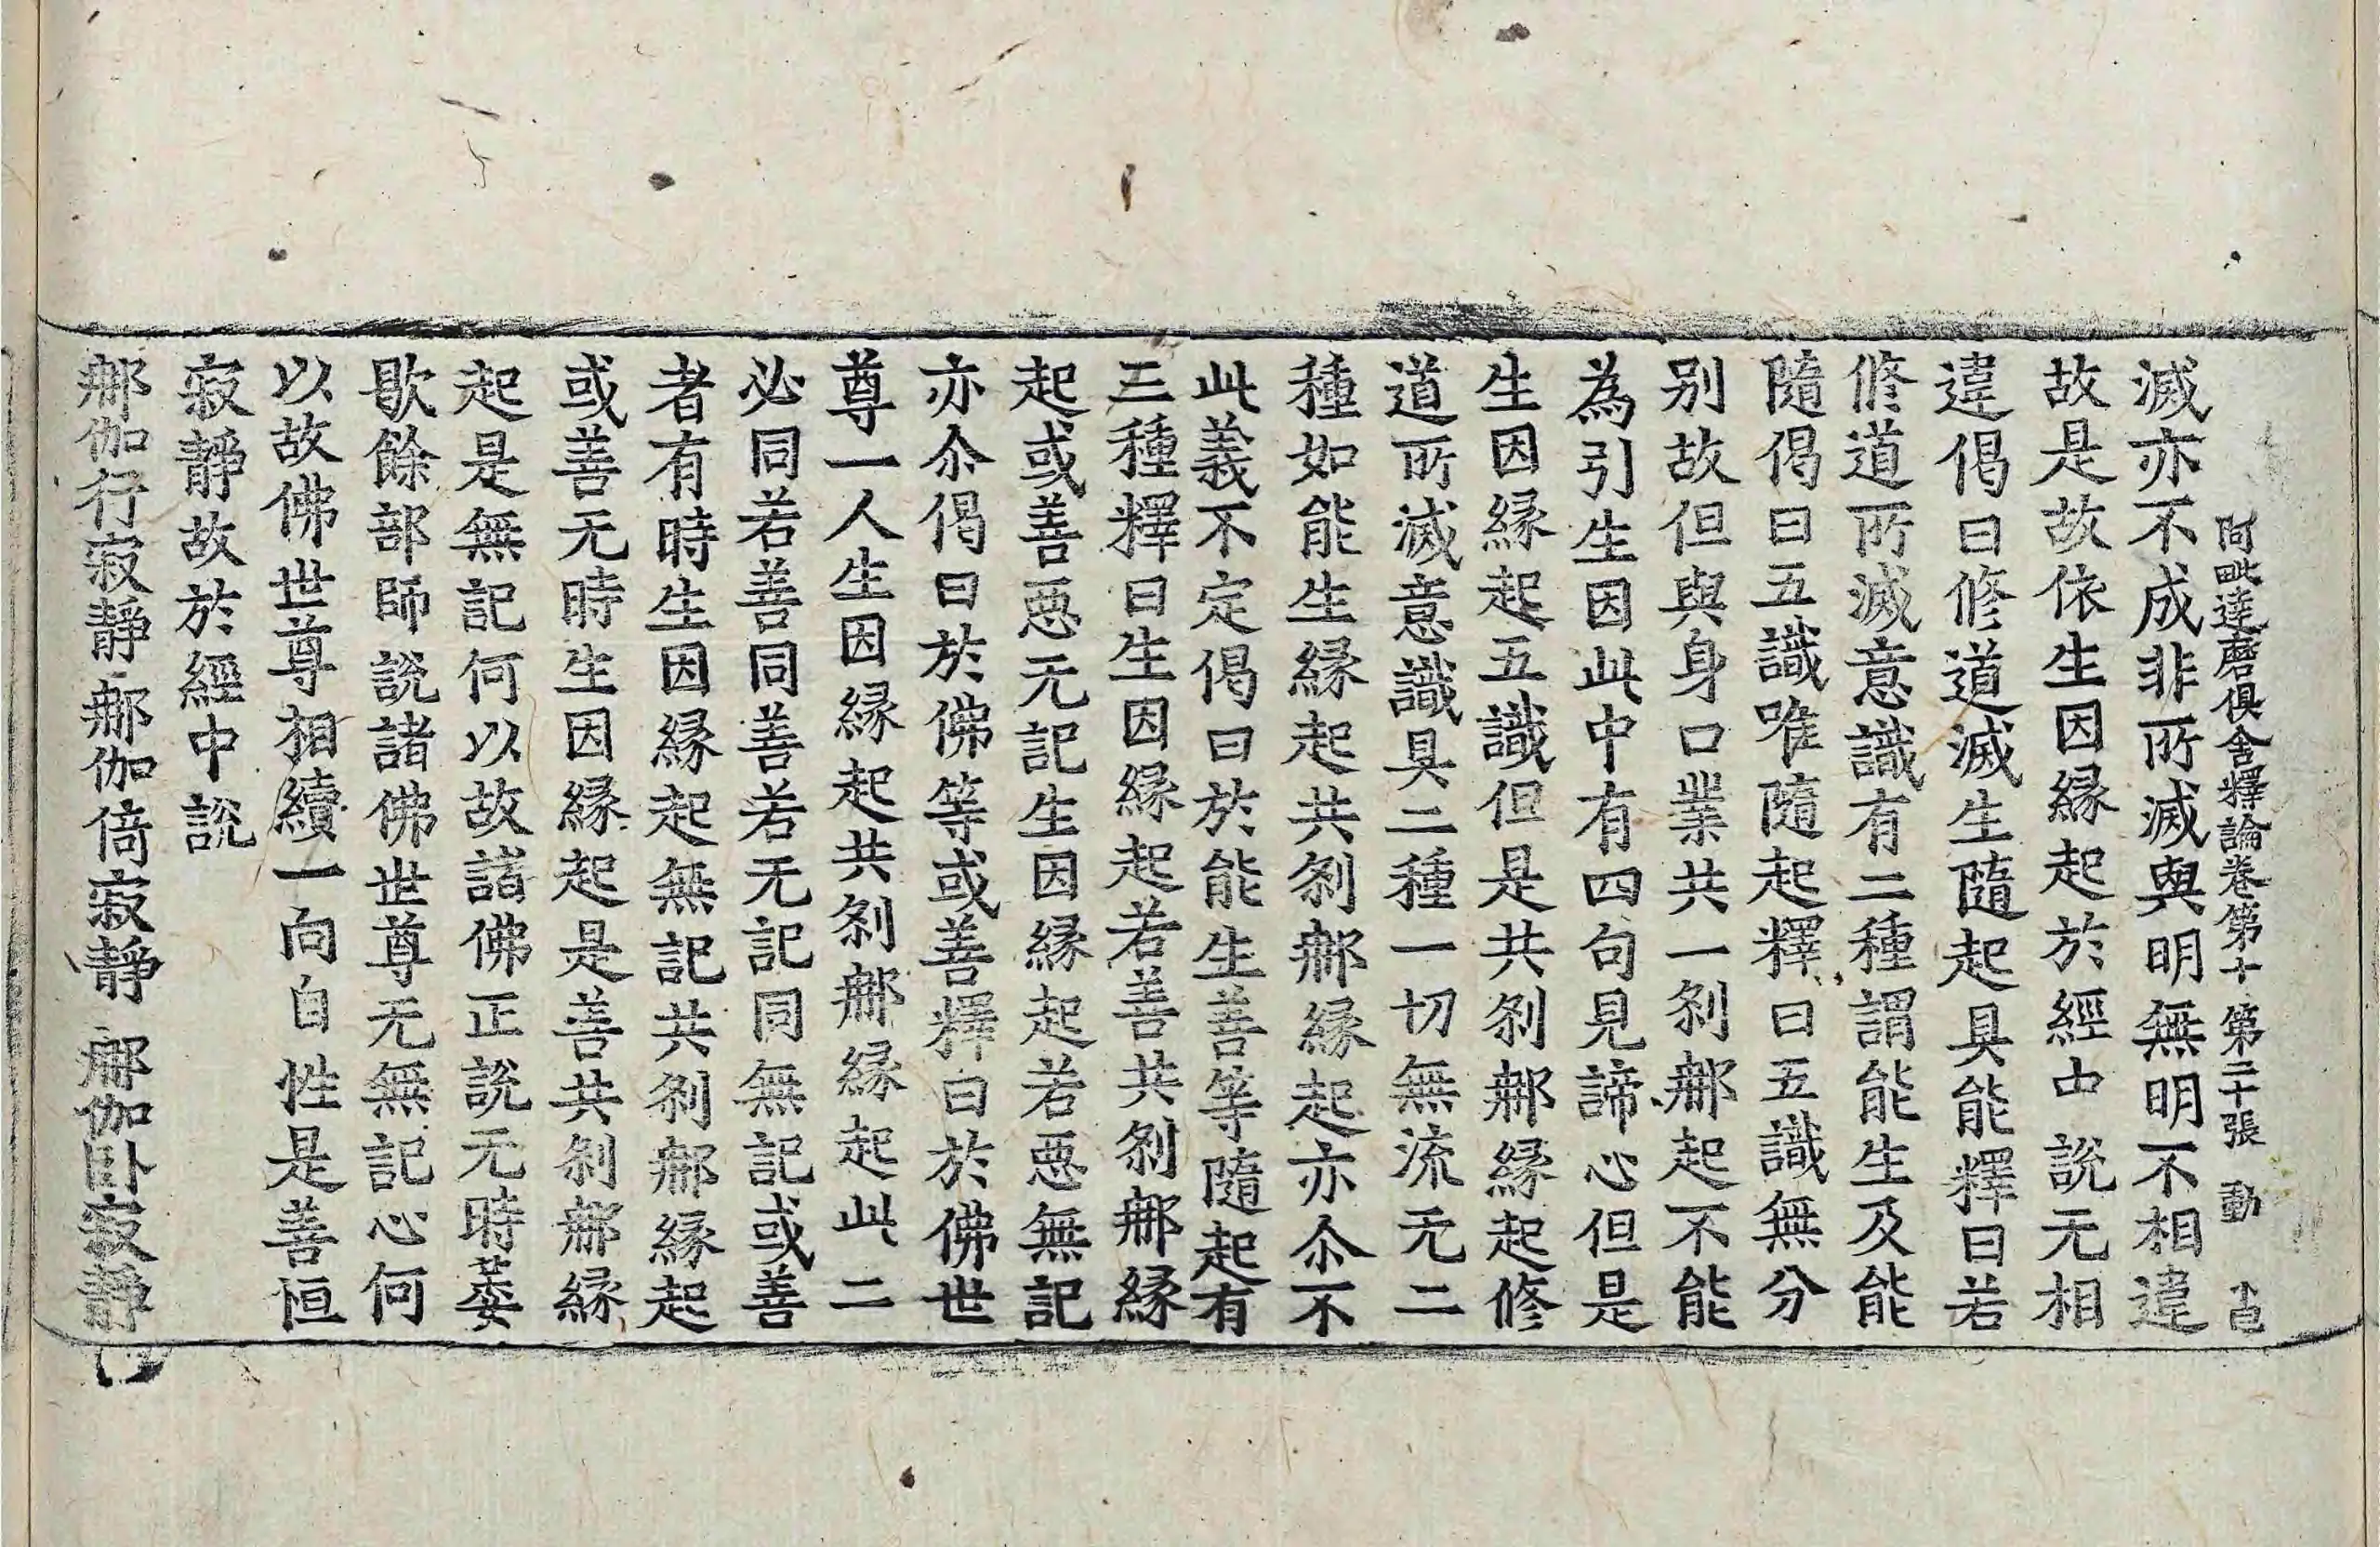 阿毗達磨俱舍釋論卷第十 第二十張 動
滅亦不成非所滅與明無明不相違
故是故依生因緣起於經中說无相
違偈曰修道滅生隨起具能釋曰若
修道所滅意識有二種謂能生及能
隨偈曰五識唯隨起釋曰五識無分
别故但與身口業共一剎𨚗起不能
為引生因此中有四句見諦心但是
生因緣起五識但是共剎𨚗緣起修
道所滅意識具二種一切無流无二
種如能生緣起共剎𨚗緣起亦尒不
此義不定偈曰於能生善等隨起有
三種釋曰生因緣起若善共剎𨚗緣
起或善惡无記生因緣起若惡無記
亦尒偈曰於佛等或善釋曰於佛世
尊一人生因緣起共剎𨚗緣起此二
必同若善同善若无記同無記或善
者有時生因緣起無記共剎𨚗緣起
或善无時生因緣起是善共剎𨚗緣
起是無記何以故諸佛正說无時萎
歇餘部師說諸佛世尊无無記心何
以故佛世尊相續一向自性是善恒
寂靜故於經中說
𨚗伽行寂靜 𨚗伽倚寂靜 𨚗伽卧寂靜